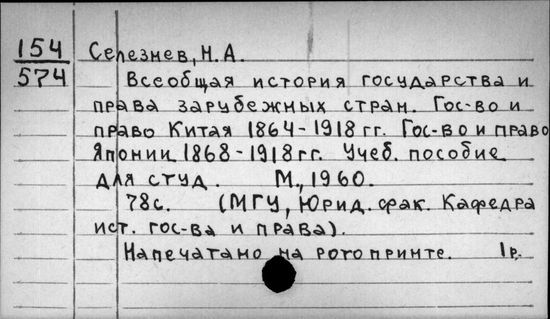 154 Селезнев, Н. А.
574 Всеобщая история государства и
права зарубежных стран. Гос-во и
право Китая 1864-1918 гг. Гос-во и право
Японии 1868-1918 гг. Учеб. пособие
для студ. М., 1960.
78с. (МГУ, Юрид. фак. Кафедра
ист. гос-ва и права).
Напечатано на ротопринте. 1р.